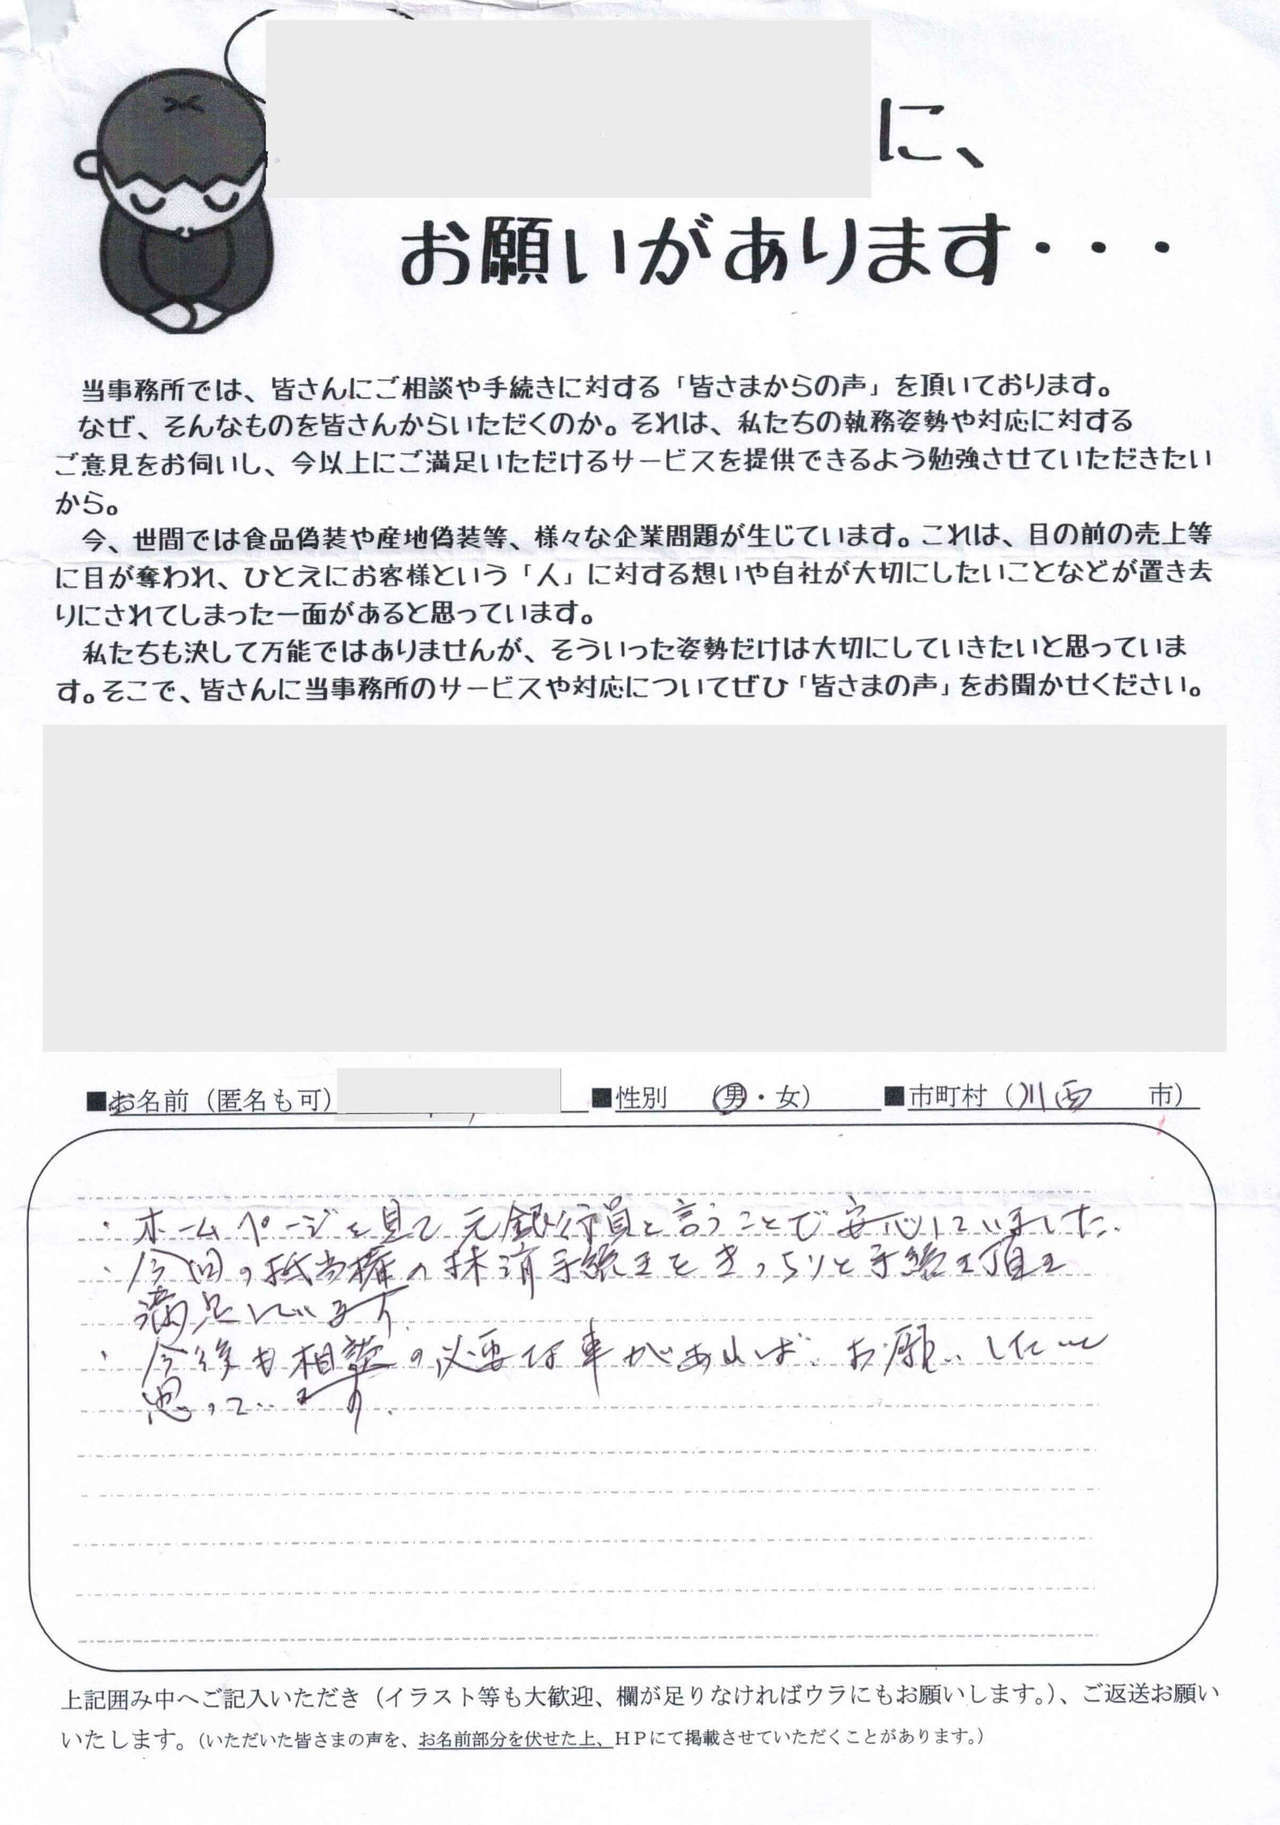 に、
お願いがあります・・・
当事務所では、皆さんにご相談や手続きに対する「皆さまからの声」を頂いております。
なぜ、そんなものを皆さんからいただくのか。それは、私たちの執務姿勢や対応に対する
ご意見をお伺いし、今以上にご満足いただけるサービスを提供できるよう勉強させていただきたい
から。
今、世間では食品偽装や産地偽装等、様々な企業問題が生じています。これは、目の前の売上等
に目が奪われ、ひとえにお客様という「人」に対する想いや自社が大切にしたいことなどが置き去
りにされてしまった一面があると思っています。
私たちも決して万能ではありませんが、そういった姿勢だけは大切にしていきたいと思っていま
す。そこで、皆さんに当事務所のサービスや対応についてぜひ「皆さまの声」をお聞かせください。
■お名前（匿名も可） ■性別 （男・女） ■市町村（川西 市）
・ホームページを見て元銀行員と言うことで安心していました.
・今回の抵当権の抹消手続きをきっちりと手続き頂き
満足しています.
・今後も相談の必要な事があれば、お願いしたいと
思っています.
上記囲み中へご記入いただき（イラスト等も大歓迎、欄が足りなければウラにもお願いします。）、ご返送お願い
いたします。（いただいた皆さまの声を、お名前部分を伏せた上、HPにて掲載させていただくことがあります。）